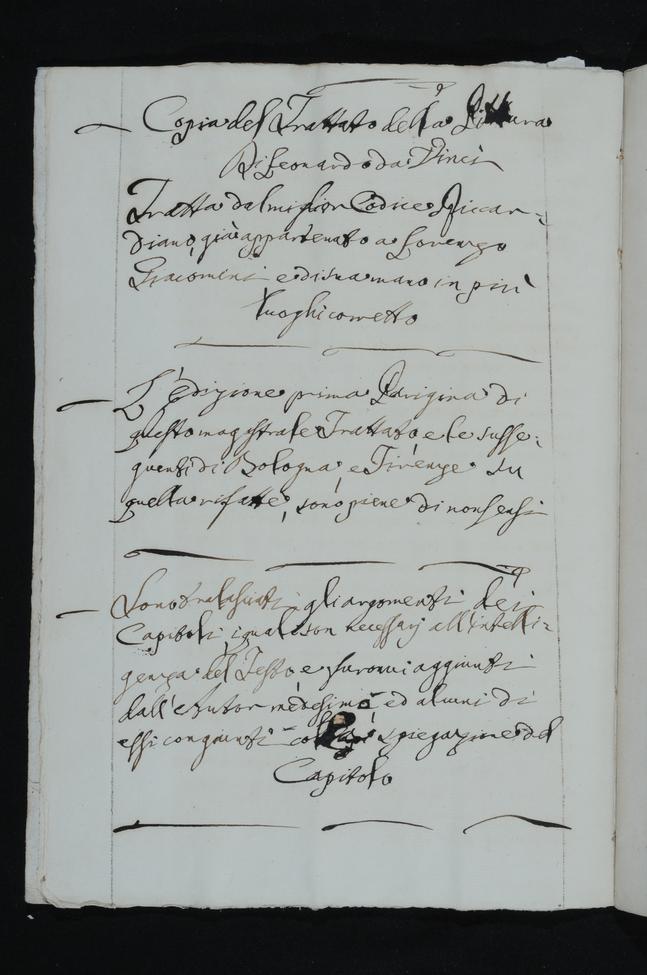 Copia del Trattato della Pittura
Di Leonardo da Vinci
Tratta dal miglior Codice Riccar-
diano, già appartenuto a Lorenzo
Giacomini e di sua mano in più
luoghi corretto
L'edizione prima Parigina di
questo magistrale Trattato e le susse-
quenti di Bologna, e Firenze su
quella rifatte, sono piene di nonsensi
Sono tralasciati gli argomenti dei
Capitoli i quali son necessarj all'intelli-
genza del Testo e furonvi aggiunti
dall'Autor medesimo ed alcuni di
essi congiunti spiegazione del
Capitolo